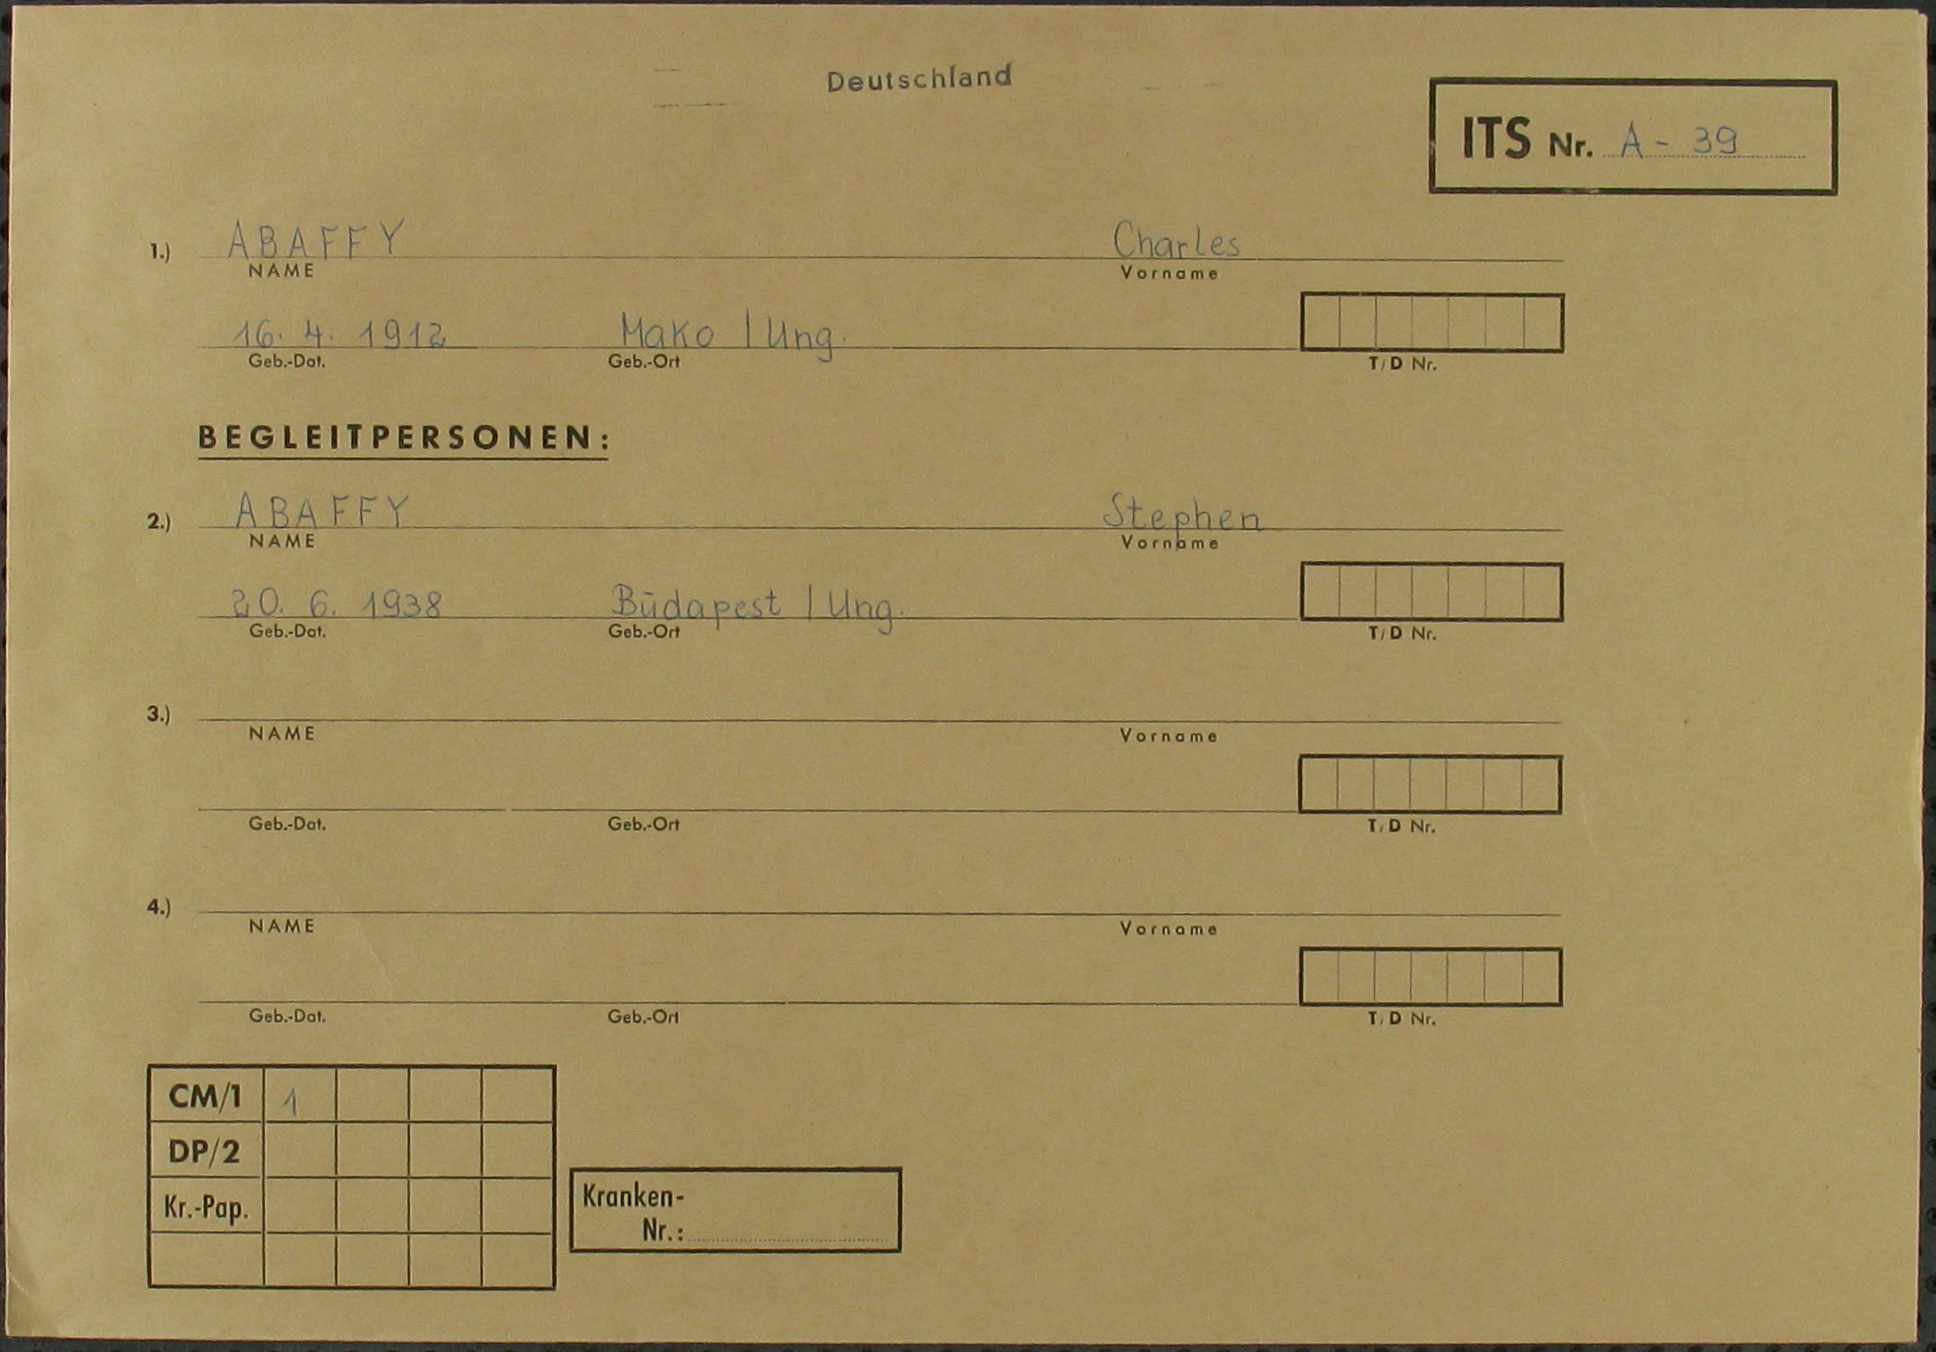 Deutschland
ITS Nr. A - 39
1.) ABAFFY Charles
NAME Vorname
16. 4. 1912 Mako / Ung.
Geb.-Dat. Geb.-Ort T/D Nr.
BEGLEITPERSONEN:
2.) ABAFFY Stephen
NAME Vorname
20. 6. 1938 Būdapest / Ung.
Geb.-Dat. Geb.-Ort T/D Nr.
3.)
NAME Vorname
Geb.-Dat. Geb.-Ort T/D Nr.
4.)
NAME Vorname
Geb.-Dat. Geb.-Ort T/D Nr.
CM/1 1
DP/2
Kr.-Pap.
Kranken-
Nr.: